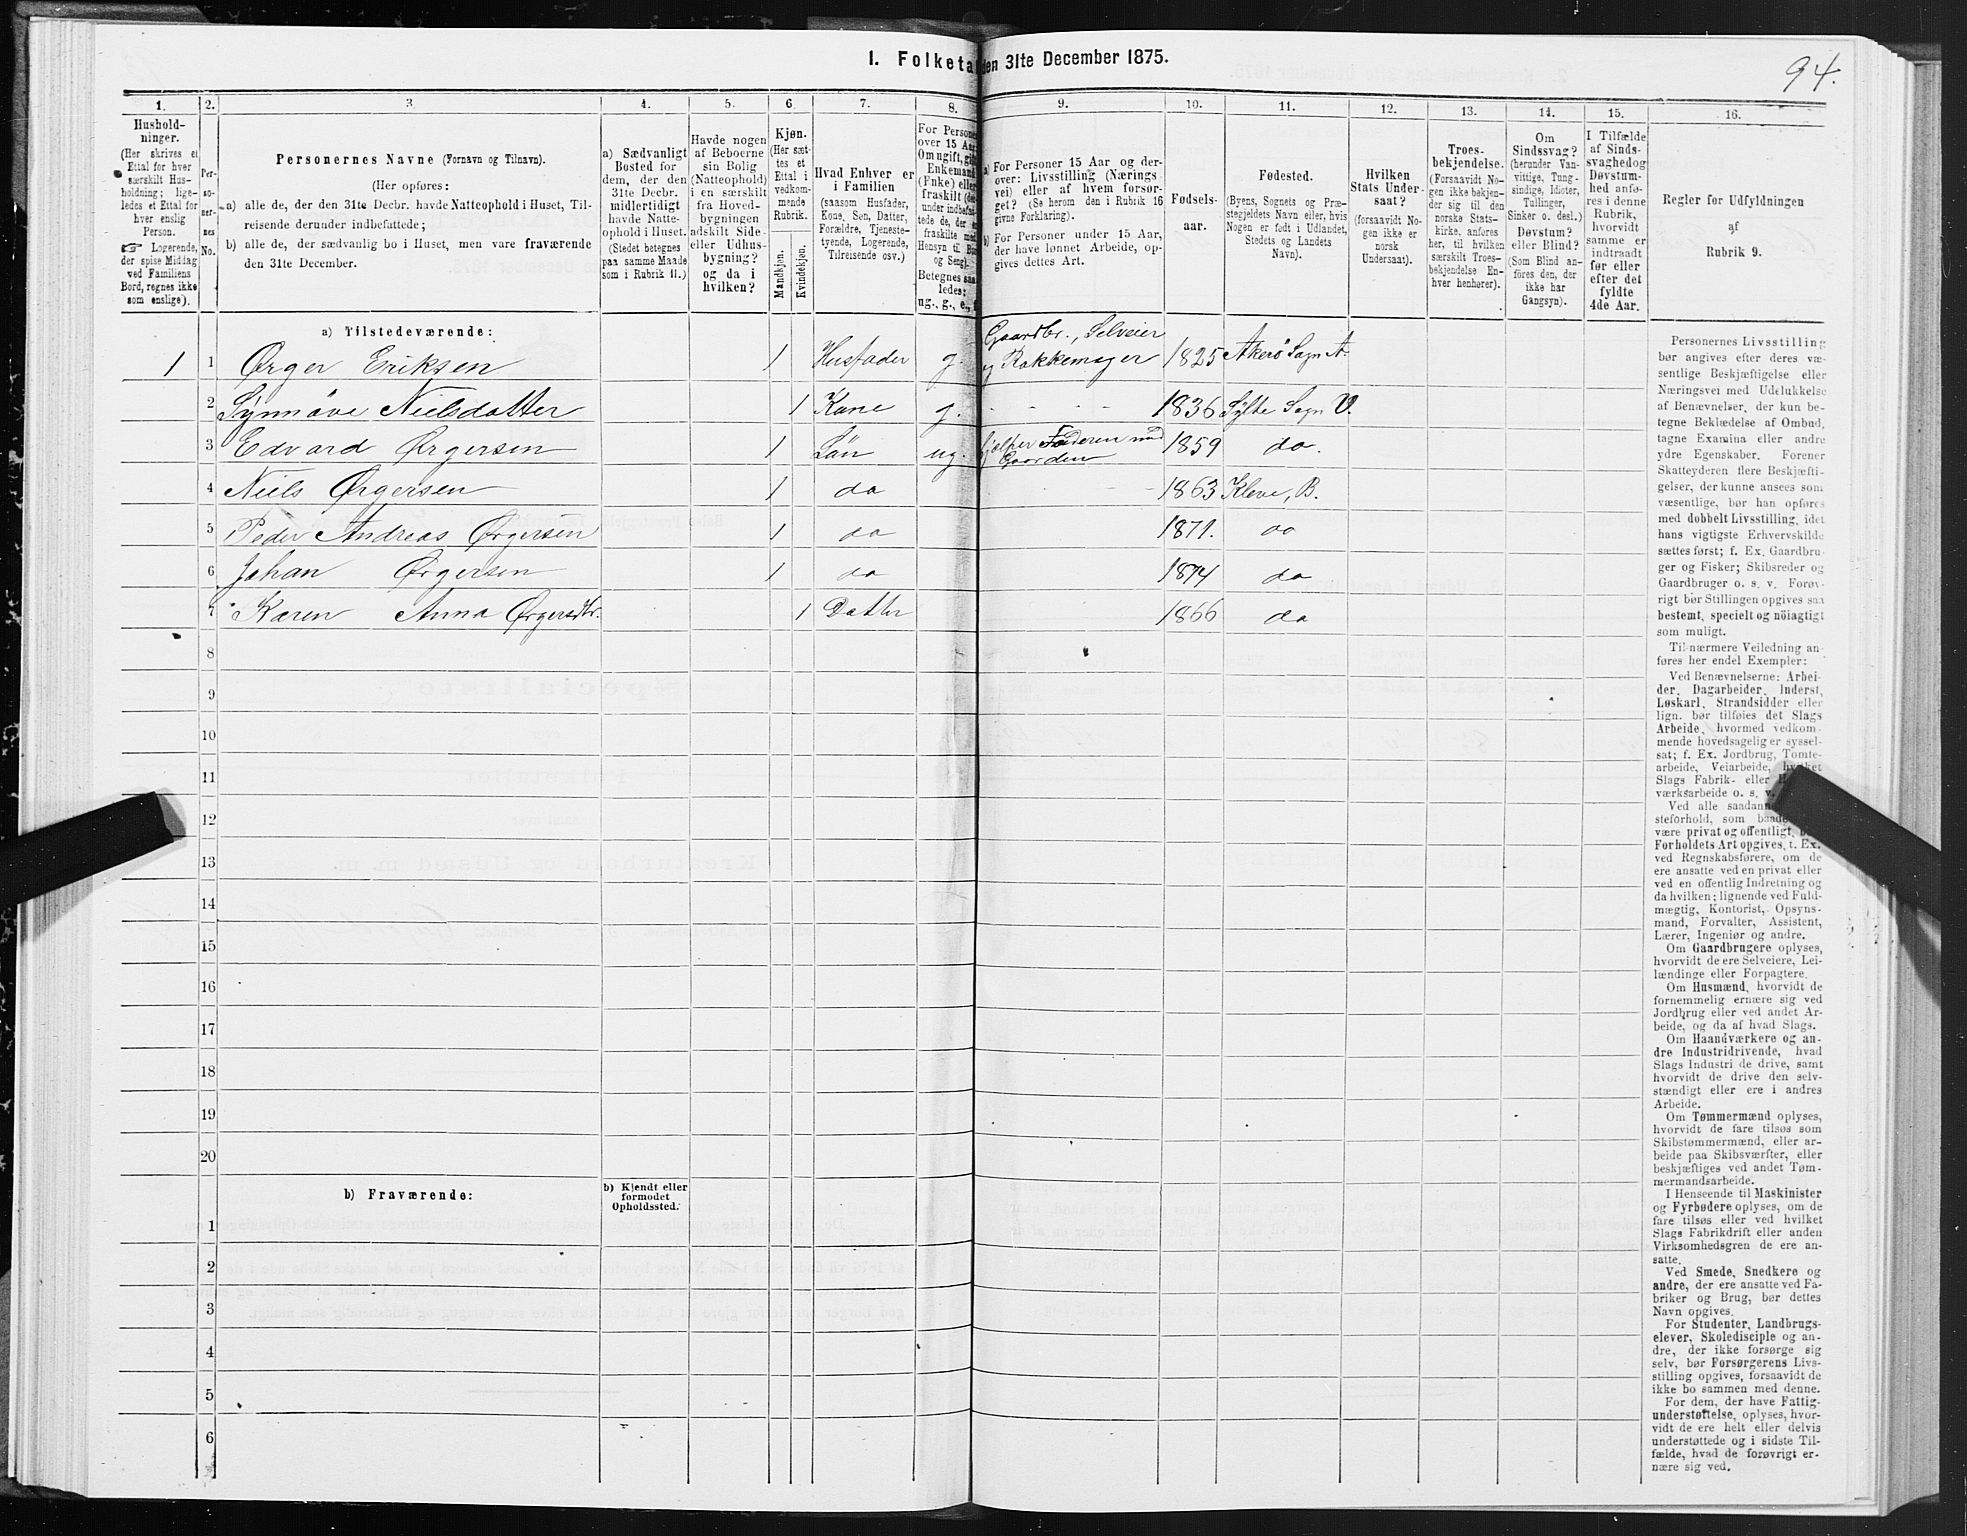 I. Folketal den 31te December 1875.
94.
1.
2.
3
4.
5.
6.
7.
8.
9.
10.
11.
12.
13.
14.
15.
16.
Hushold-
ninger.
(Her skrives et
Ettal for hver
særskilt Hus-
holdning; lige-
ledes et Ettal for
hver enslig
Person.
☞ Logerende,
der spise Middag
ved Familiens
Bord, regnes ikke
som enslige).
Per-
so-
ner-
nes
No.
Personernes Navne (Fornavn og Tilnavn).
(Her opføres:
a) alle de, der den 31te Decbr. havde Natteophold i Huset, Til-
reisende derunder indbefattede;
b) alle de, der sædvanlig bo i Huset, men vare fraværende
den 31te December.
a) Sædvanligt
Bosted for
dem, der den
31te Decbr.
midlertidigt
havde Natte-
ophold i Huset.
(Stedet betegnes
paa samme Maade
som i Rubrik 11.)
Havde nogen
af Beboerne
sin Bolig
(Natteophold)
i en særskilt
fra Hoved-
bygningen
adskilt Side-
eller Udhus-
bygning?
og da i
hvilken?
Kjøn.
(Her sæt-
tes et
Ettal i
vedkom-
mende
Rubrik.
Mandkjøn.
Kvindekjøn.
Hvad Enhver er
i Familien
(saasom Husfader,
Kone, Søn, Datter,
Forældre, Tjeneste-
tyende, Logerende,
Tilreisende osv.)
For Persone
over 15 Aar
Om ugift, gift
Enkemand
(Enke) eller
fraskilt
Betegnes saa-
ledes:
ug., g., e.,
a) For Personer 15 Aar og der-
over: Livsstilling (Nærings
vei) eller af hvem forsør-
get? (Se herom den i Rubrik 16
givne Forklaring).
b) For Personer under 15 Aar,
der have lønnet Arbeide, op-
gives dettes Art.
Fødsels-
aar.
Fødested.
(Byens, Sognets og Præ-
stegjeldets Navn eller, hvis
Nogen er født i Udlandet,
Stedets og Landets
Navn).
Hvilken
Stats Under-
saat?
(forsaavidt No-
gen ikke er
norsk
Undersaat).
Troes-
bekjendelse.
(Forsaavidt No-
gen ikke bekjen-
der sig til den
norske Stats-
kirke, anføres
her, til hvilken
særskilt Troes-
bekjendelse En-
hver henhører).
Om
Sindssvag?
(herunder Van-
vittige, Tung-
sindige, Idioter,
Tullinger,
Sinker o. desl.)
Døvstum?
eller Blind?
(Som Blind an-
føres den, der
ikke har
Gangsyn).
I Tilfælde
af Sinds-
svaghed og
Døvstum-
hed anfø-
res i denne
Rubrik,
hvorvidt
samme er
indtraadt
før eller
efter det
fyldte
4de Aar.
Regler for Udfyldningen
af
Rubrik 9.
a) Tilstedeværende:
1 1 Ørger Eriksen 1 Husfader g. Gaardbr., Selveier
og Rokkemager 1825 Akerö Sogn A.
2 Synnöve Nielsdatter 1 Kone g. 1836 Sylte Sogn V.
3 Edvard Ørgersen 1 Sön ug. hjælper Faderen med
Gaarden 1859 do.
4 Niels Ørgersen 1 do 1863 Kleve, B.
5 Peder Andreas Ørgersen 1 do 1871. do
6 Johan Ørgersen 1 do 1874 do
7 Karen Anna Ørgersdtr. 1 Datter 1866 do
8
9
10
11
12
13
14
15
16
17
18
19
20
b) Fraværende:
b) Kjendt eller
formodet
Opholdssted.
1
2
3
4
5
6
Personernes Livsstilling
bør angives efter deres væ-
sentlige Beskjæftigelse eller
Næringsvei med Udelukkelse
af Benævnelser, der kun be-
tegne Beklædelse af Ombud,
tagne Examina eller andre
ydre Egenskaber. Forener
Skatteyderen flere Beskjæfti-
gelser, der kunne ansees som
væsentlige, bør han opføres
med dobbelt Livsstilling, idet
hans vigtigste Erhvervskilde
sættes først; f. Ex. Gaardbru-
ger og Fisker; Skibsreder og
Gaardbruger o. s. v. Forøv-
rigt bør Stillingen opgives saa
bestemt, specielt og nöiagtigt
som muligt.
Til nærmere Veiledning an-
føres her endel Exempler:
Ved Benævnelserne: Arbei-
der, Dagarbeider, Inderst,
Løskarl, Strandsidder eller
lign. bør tilføies det Slags
Arbeide, hvormed vedkom-
mende hovedsagelig er syssel-
sat; f. Ex. Jordbrug, Tomte-
arbeide, Veiarbeide, hvilket
Slags Fabrik- eller
værksarbeide o. s. v.
Ved alle saadan
steforhold, som baade
være privat og offentligt,
Forholdets Art opgives, t. Ex.
ved Regnskabsførere, om de
ere ansatte ved en privat eller
ved en offentlig Indretning og
da hvilken; lignende ved Fuld-
mægtig, Kontorist, Opsyns-
mand, Forvalter, Assistent,
Lærer, Ingeniør og andre.
Om Gaardbrugere oplyses,
hvorvidt de ere Selveiere, Lei-
lændinge eller Forpagtere.
Om Husmænd, hvorvidt de
fornemmelig ernære sig ved
Jordbrug eller ved andet Ar-
beide, og da af hvad Slags.
Om Haandværkere og an-
dre Industridrivende, hvad
Slags Industri de drive, samt
hvorvidt de drive den selv-
stændigt eller ere i andres
Arbeide.
Om Tømmermænd oplyses,
hvorvidt de fare tilsøs som
Skibstømmermænd, eller ar-
beide paa Skibsværfter, eller
beskjæftiges ved andet Tøm-
mermandsarbeide.
I Henseende til Maskinister
og Fyrbødere oplyses, om de
fare tilsøs eller ved hvilket
Slags Fabrikdrift eller anden
Virksomhedsgren de ere an-
satte.
Ved Smede, Snedkere og
andre, der ere ansatte ved Fa-
briker og Brug, bør dettes
Navn opgives.
For Studenter, Landbrugs-
elever, Skoledisciple og an-
dre, der ikke forsørge sig
selv, bør Forsørgerens Livs-
stilling opgives, forsaavidt de
ikke bo sammen med denne.
For dem, der have Fattig-
understøttelse, oplyses, hvor-
vidt de ere helt eller delvis
understøttede og i sidste Til-
fælde, hvad de forøvrigt er-
nære sig ved.